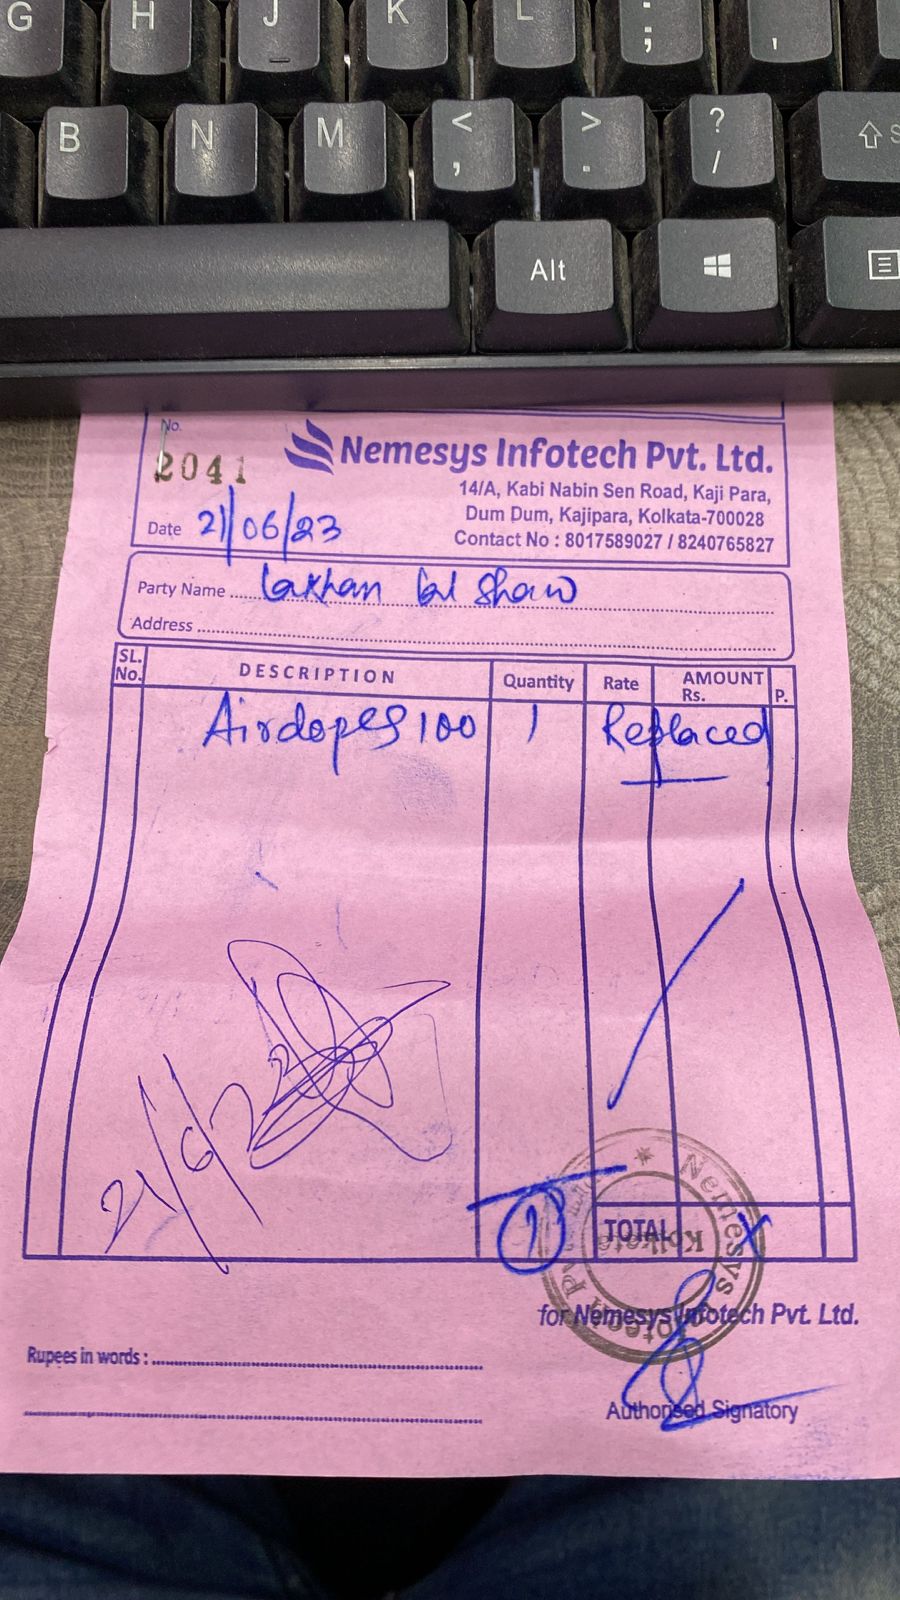 G H J K L : ;
' 
B N M < , > . ? / S
Alt
No.
2041
Nemesys Infotech Pvt. Ltd.
14/A, Kabi Nabin Sen Road, Kaji Para,
Dum Dum, Kajipara, Kolkata-700028
Date 21/06/23
Contact No : 8017589027 / 8240765827
Party Name Lakhan Lal Shaw
Address
SL. No. DESCRIPTION Quantity Rate AMOUNT Rs. P.
Airdopes 100 1 Replaced
21/6/23
1 TOTAL X
Nemesys Infotech Kolkata
for Nemesys Infotech Pvt. Ltd.
Rupees in words :
Authorised Signatory